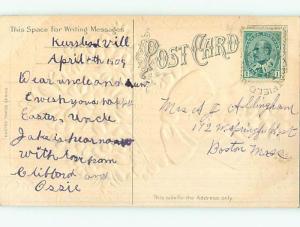 This Space For Writing Messages
POST CARD
April 4th 1909
Dear uncle and aunt
I wish you happy
Easter, Uncle
Jake is hear now
with love from
Clifford and
Ossie
Mrs A Dellingham
192 Springfield St
Boston Mass
This side for the Address only.